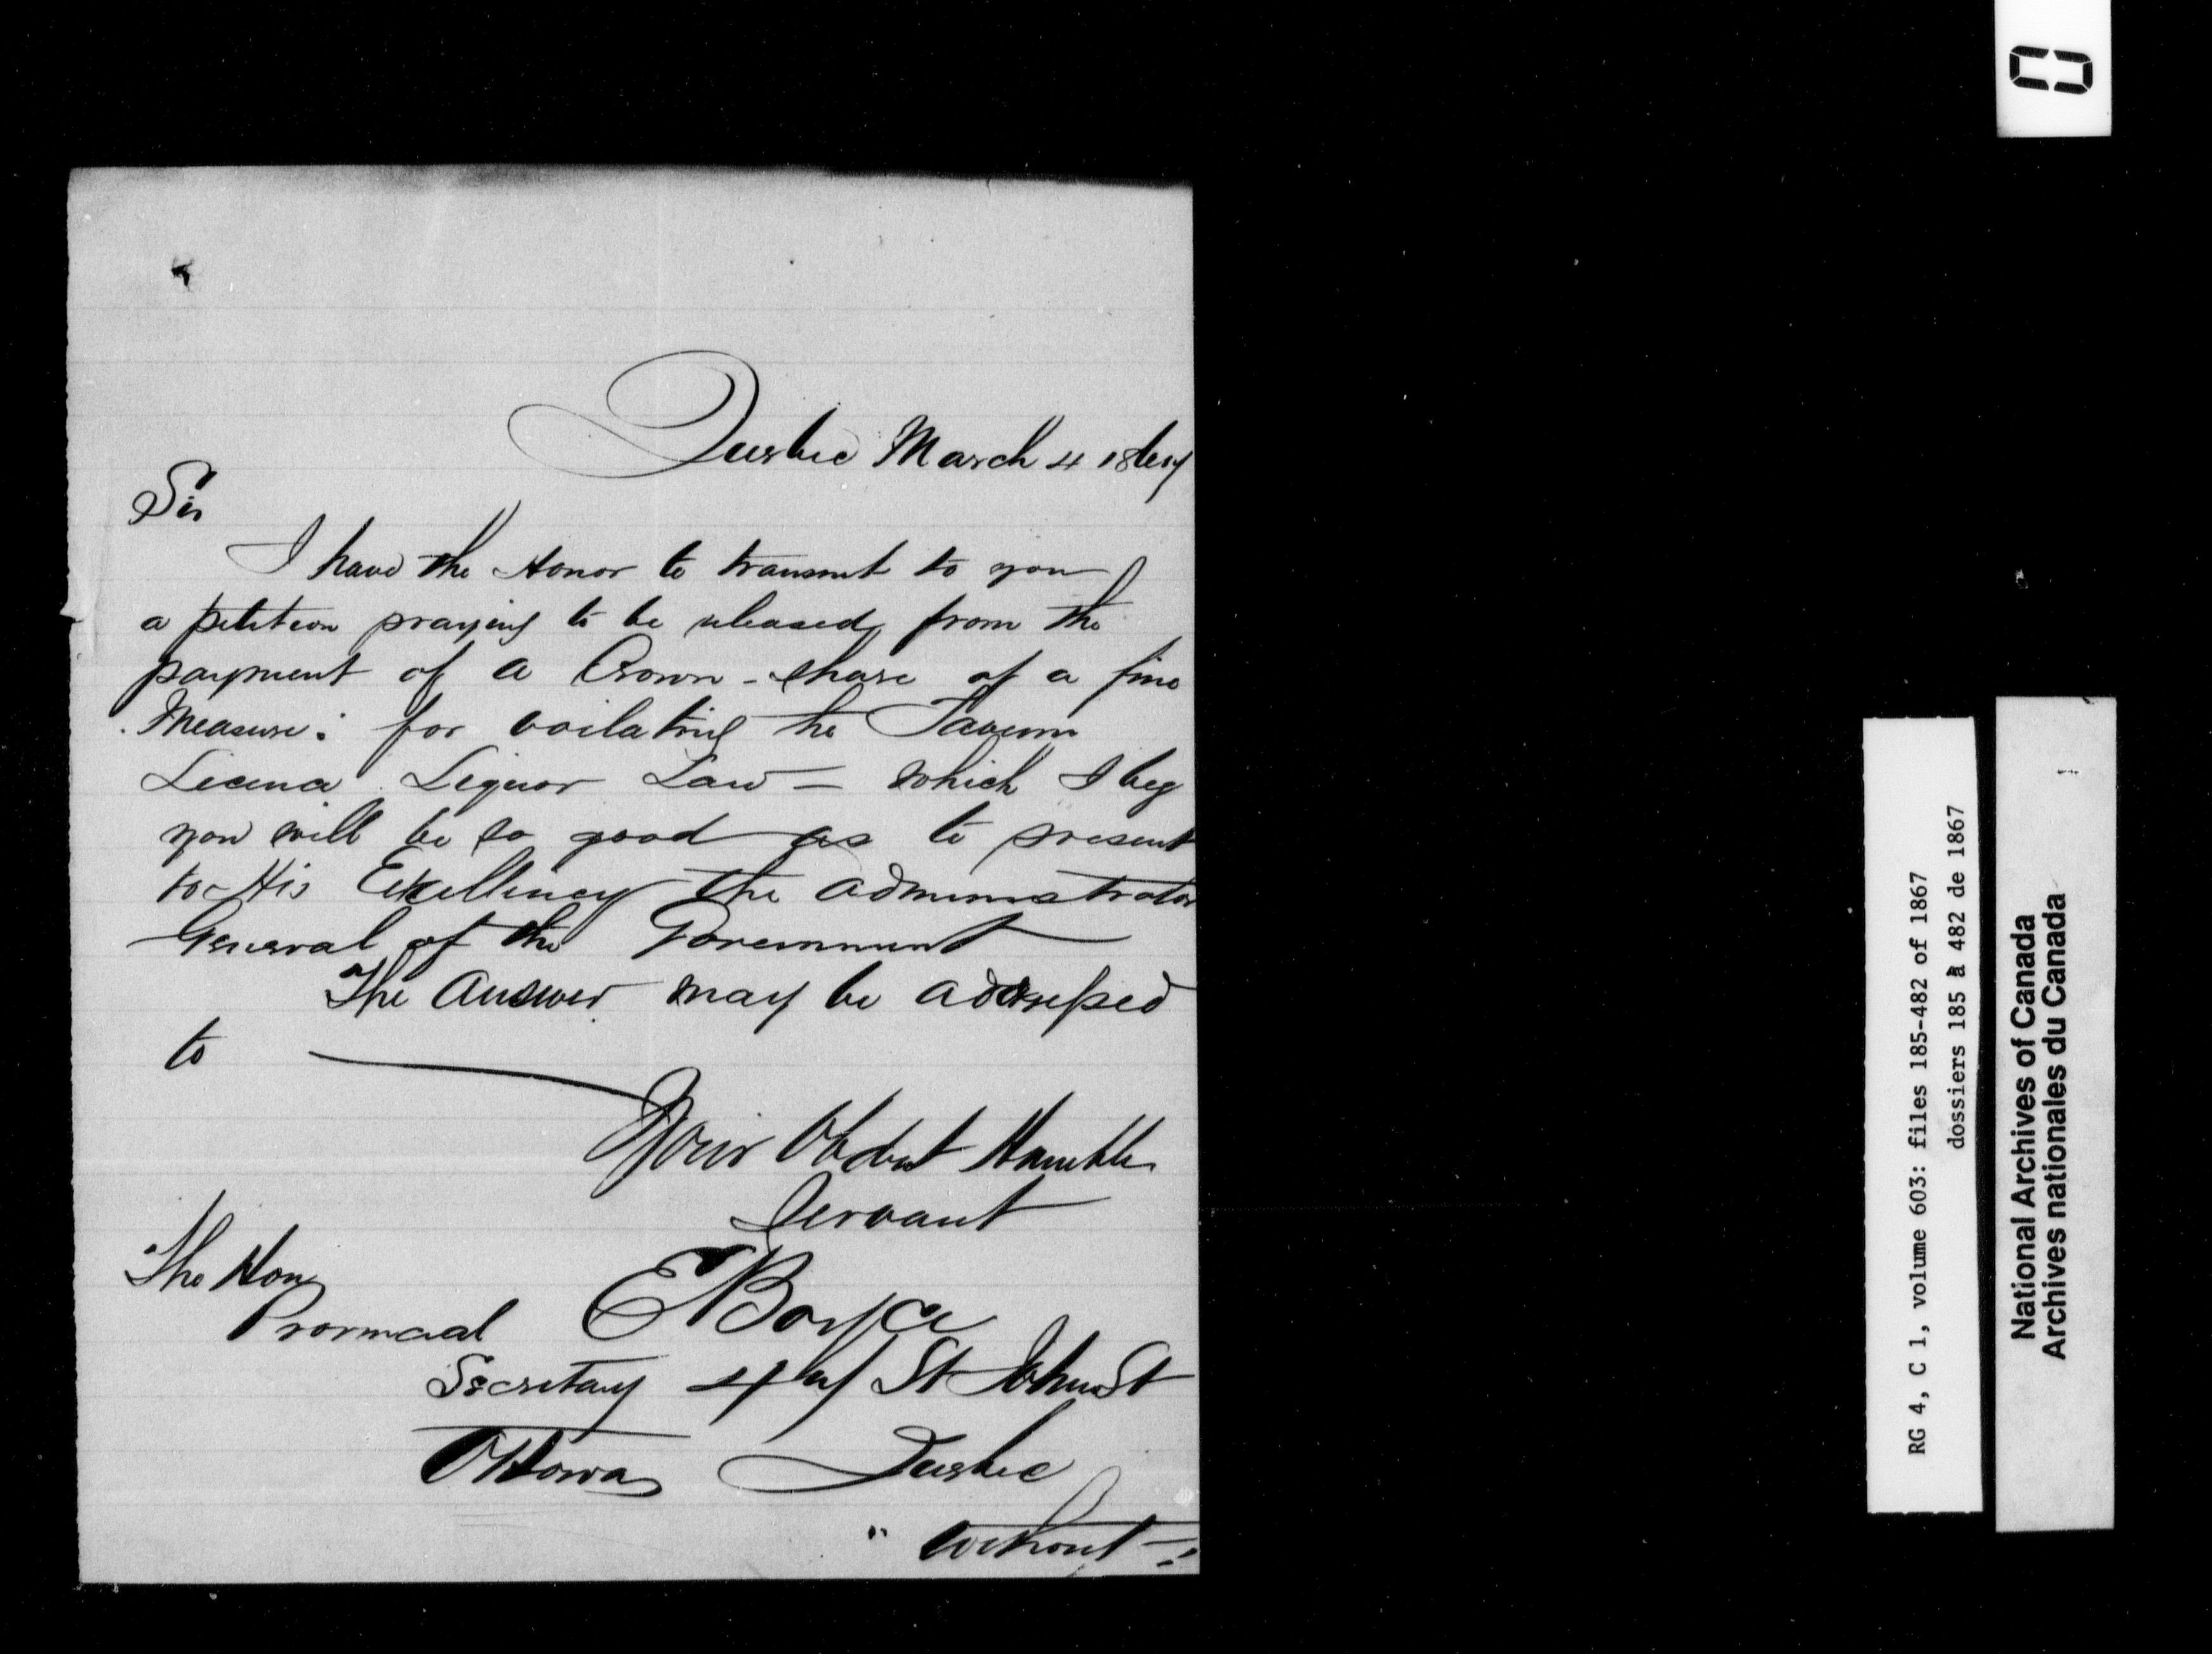 Quebec March 4 1867
Sir
I have the Honor to transmit to you
a petition praying to be released from the
payment of a Crown - share of a fine
Measure: for voilating the Tavern
Licence Liquor Law — which I beg
you will be so good as to present
to His Excellency the Administrator
General of the Government
The Answer may be addressed
to
Your Obdent Humble
Servant
The Hon
E Boyce
Provincial
Secretary
St John St
Ottowa
Quebec
" without - "
RG 4, C 1, volume 603: files 185-482 of 1867
dossiers 185 à 482 de 1867
National Archives of Canada
Archives nationales du Canada
0